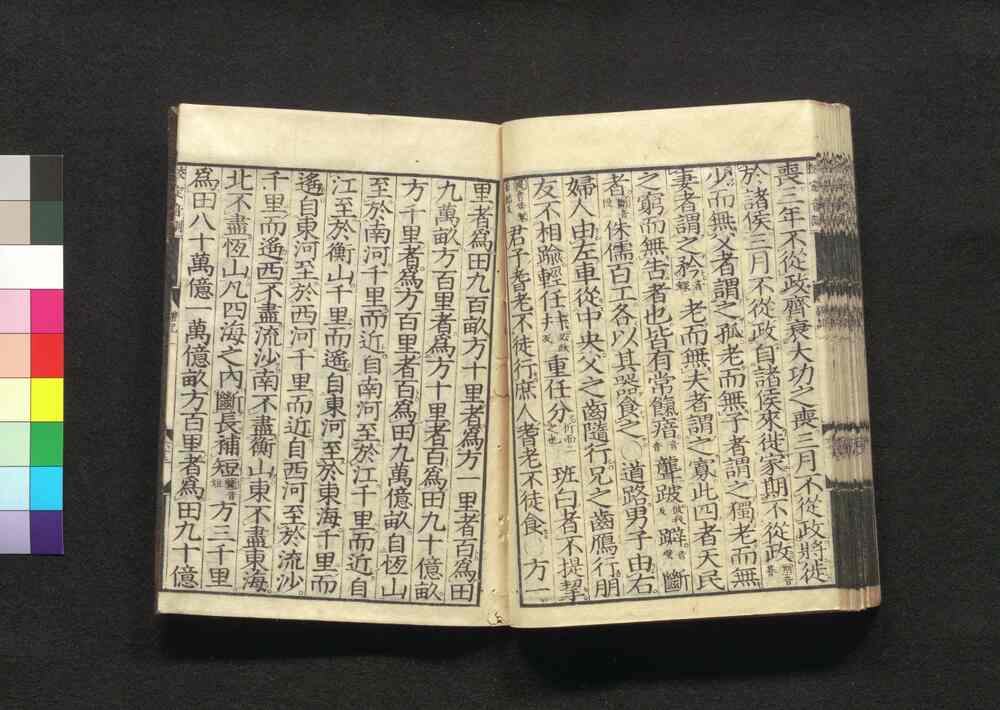 喪三年不從政齊衰大功之喪三月不從政將徙
於諸侯三月不從政自諸侯來徙家期不從政
少而無父者謂之孤老而無子者謂之獨老而無
妻者謂之矜老而無夫者謂之寡此四者天民
之窮而無告者也皆有常餼瘖聾跛躃斷
者侏儒百工各以其器食之〇道路男子由右
婦人由左車從中央父之齒隨行兄之齒鴈行朋
友不相踰輕任幷重任分班白者不提挈
君子耆老不徒行庶人耆老不徒食〇方一
里者爲田九百畝方十里者爲方一里者百爲田
九萬畝方百里者爲方十里者百爲田九十億畝
方千里者爲方百里者百爲田九萬億畝自恆山
至於南河千里而近自南河至於江千里而近自
江至於衡山千里而遙自東河至於東海千里而
遙自東河至於西河千里而近自西河至於流沙
千里而遙西不盡流沙南不盡衡山東不盡東海
北不盡恆山凡四海之內斷長補短方三千里
爲田八十萬億一萬億畝方百里者爲田九十億